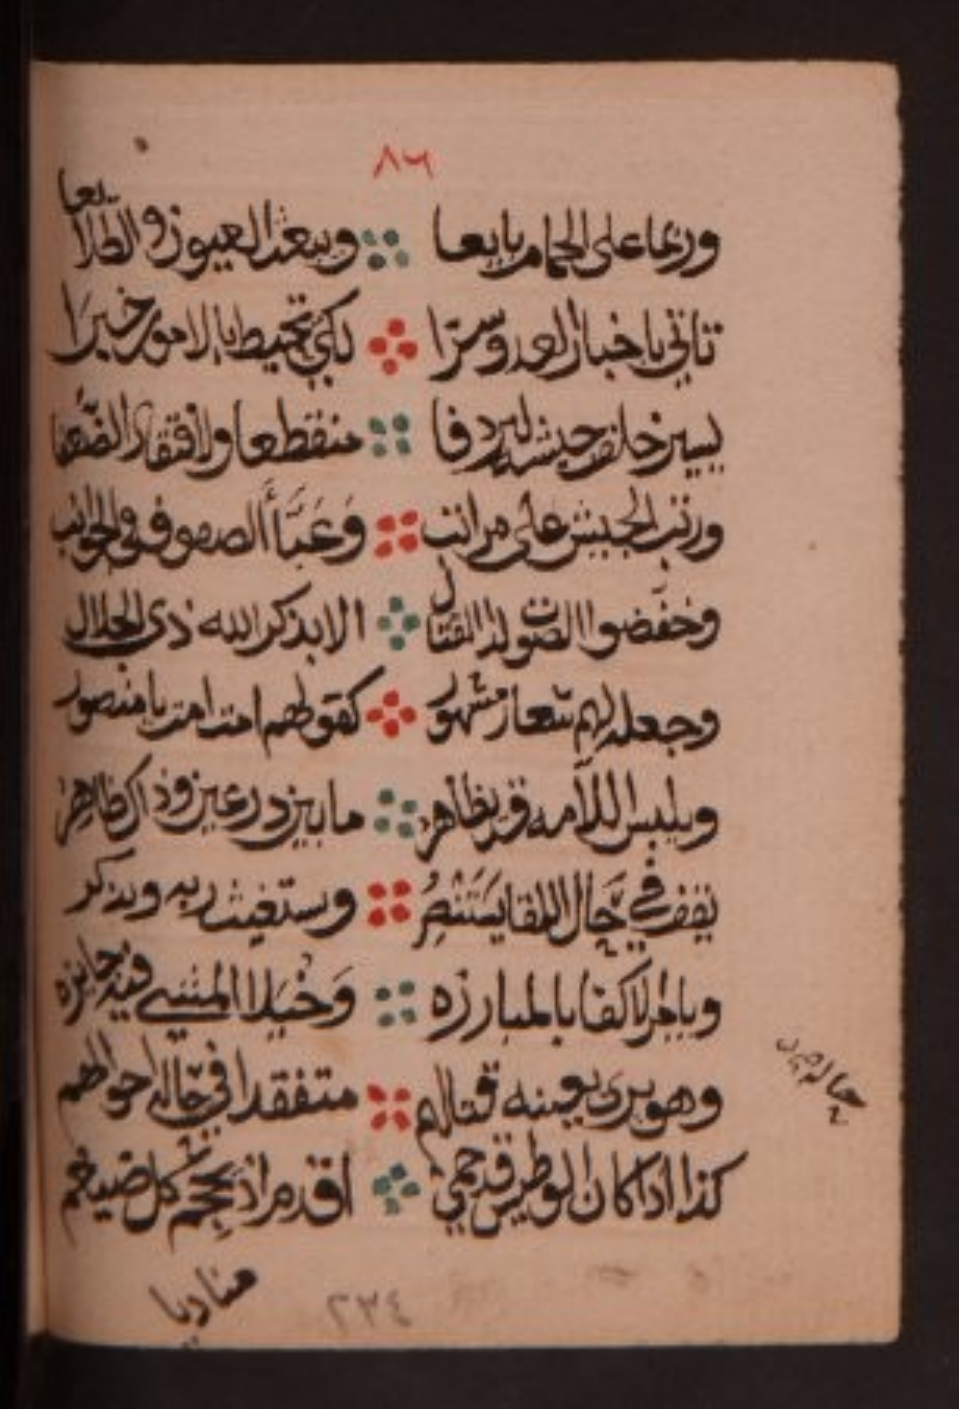 ٨٦
وربما على الحمام بايعا ويبعث العيون والطلايعا
تاتي باخبار العدو سرا لكي تحيط بالامور خبرا
يسير خلف جيشه ليردفا منقطعا ولافتقاد الضعفا
ورتب الجيش على مراتب وعبأ الصفوف في الجوانب
وخفضوا الصوت لذا القتال الا بذكر الله ذي الجلال
وجعله لهم شعار مشهور كقولهم امت امت يا منصور
ويلبس اللأمه قد يظاهر ما بين درعين وذاك ظاهر
يقف في حال اللقا يستنصر وستغيث ربه ويذكر
ويامر الاكفا بالمبارزه وخيلا المشي فيه جايزه
وهو يرى بعينه قتالهم متفقدا في حاله احوالهم
حاله حربه
كذا اذا كان الوطيس قد حمي اقدم اذ يحجم كل ضيغم
مناديا
٢٣٤